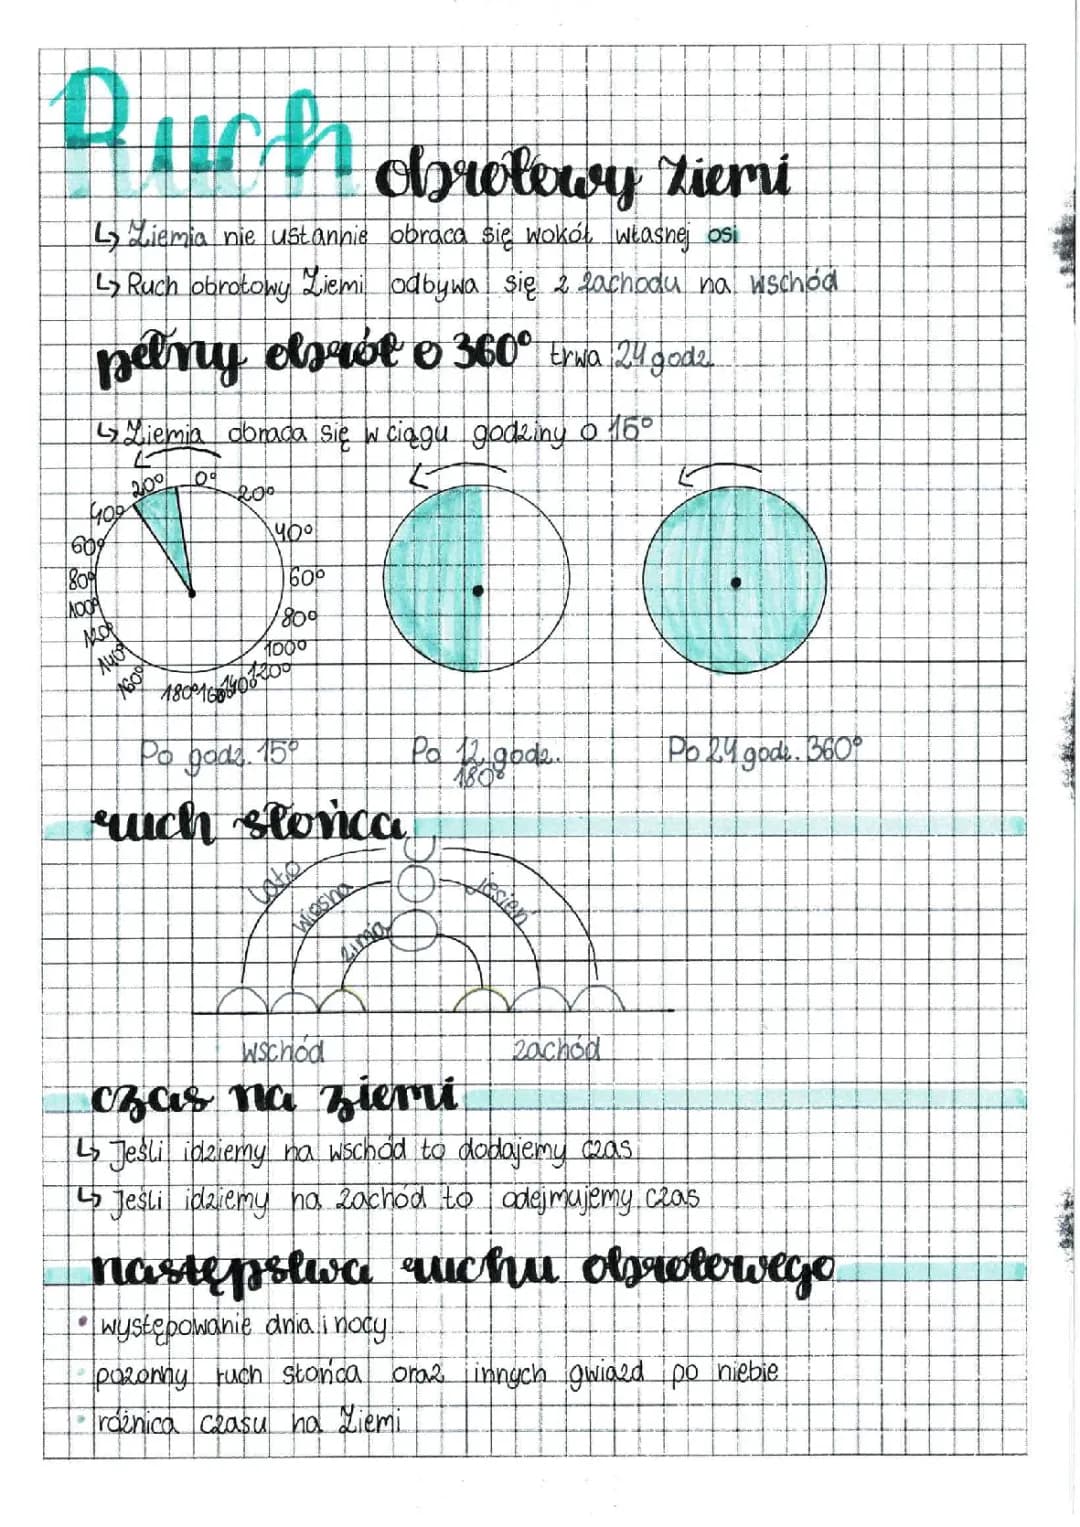 Ruch obrotowy Ziemi
↳ Ziemia nie ustannie obraca się wokół własnej osi
↳ Ruch obrotowy Ziemi odbywa się z zachodu na wschód
pełny obrót o 360° trwa 24 godz.
↳ Ziemia obraca się w ciągu godziny o 15°
20° 0° 20°
40° 40°
60° 60°
80° 80°
100° 100°
120° 120°
140° 140°
160° 180° 160°
Po godz. 15° Po 12 godz. 180° Po 24 godz. 360°
ruch słońca
lato
wiosna jesień
zima
wschód zachód
czas na ziemi
↳ Jeśli idziemy na wschód to dodajemy czas
↳ Jeśli idziemy na zachód to odejmujemy czas
następstwa ruchu obrotowego
• występowanie dnia i nocy
• pozorny ruch słońca oraz innych gwiazd po niebie
• różnica czasu na Ziemi